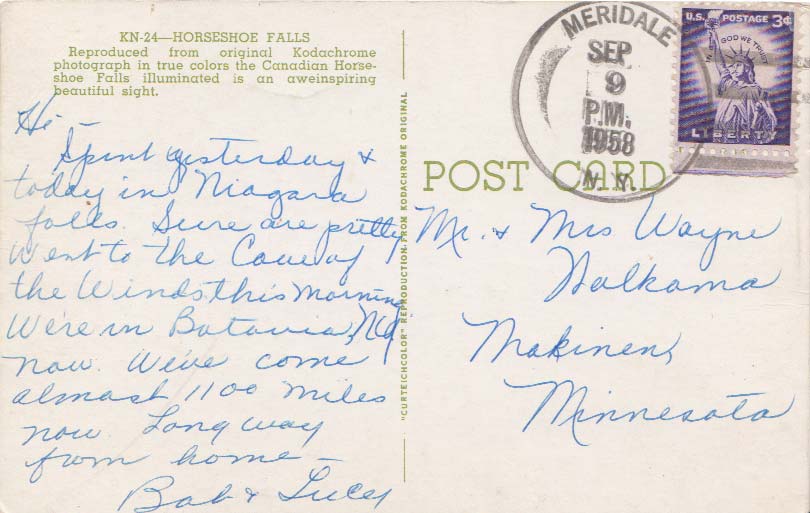 KN-24—HORSESHOE FALLS
Reproduced from original Kodachrome
photograph in true colors the Canadian Horse-
shoe Falls illuminated is an aweinspiring
beautiful sight.
Hi -
Spent yesterday &
today in Niagara
falls. Sure are pretty
Went to the Cave of
the Winds this morning
We're in Batavia, NY
now. We've come
almost 1100 miles
now. Long way
from home -
Bob & Lucy
"CURTEICHCOLOR" REPRODUCTION FROM KODACHROME ORIGINAL
POST CARD
MERIDALE
SEP
9
P.M.
1958
N.Y.
U.S. POSTAGE 3¢
IN GOD WE TRUST
LIBERTY
Mr. & Mrs Wayne
Nalkama
Makinen,
Minnesota